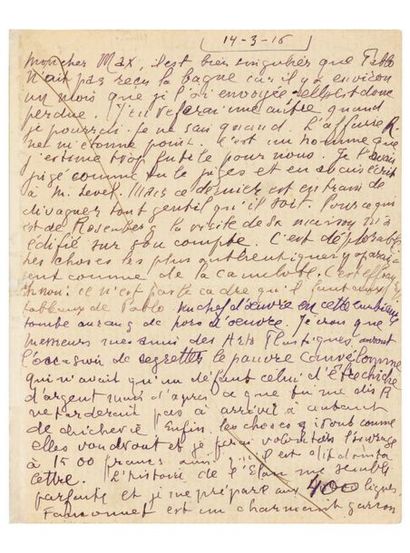 14-3-16
Mon cher Max, il est bien singulier que Pablo
n'ait pas reçu la bague car il y a environ
un mois que je l'ai envoyée elle est donc
perdue. J'en referai une autre quand
je pourrai. Je ne sais quand. L'affaire R.
ne m'étonne point. C'est un homme que
j'estime trop futile pour nous. Je l'avais
jugé comme tu le juges et en avais écrit
à M. Level. Mais ce dernier est en train de
divaguer tout gentil qu'il soit. Pour ce qui
est de Rosenberg la visite de sa maison m'a
édifié sur son compte. C'est déplorable
les choses les plus authentiques y
ont comme de la camelote. C'est
non: ce n'est pas le cadre qu'il faut aux
tableaux de Pablo un chef d'œuvre en cette ambiance
tombe au rang de hors d'oeuvre. Je crois que
messieurs mes amis des Arts Plastiques, auront
l'occasion de regretter le pauvre
qui n'avait qu'un défaut celui d'être chiche
d'argent mais d'après ce que tu me dis R
ne tarderait pas à arriver à autant
de chicherie Enfin, les choses iront comme
elles voudront et je ferai volontiers l'ouvrage
à 1500 francs ainsi qu'il est dit dans ta
lettre. L'histoire de l'Slam me semble
parfaite et je me prépare aux 400 lignes.
est un charmant garçon